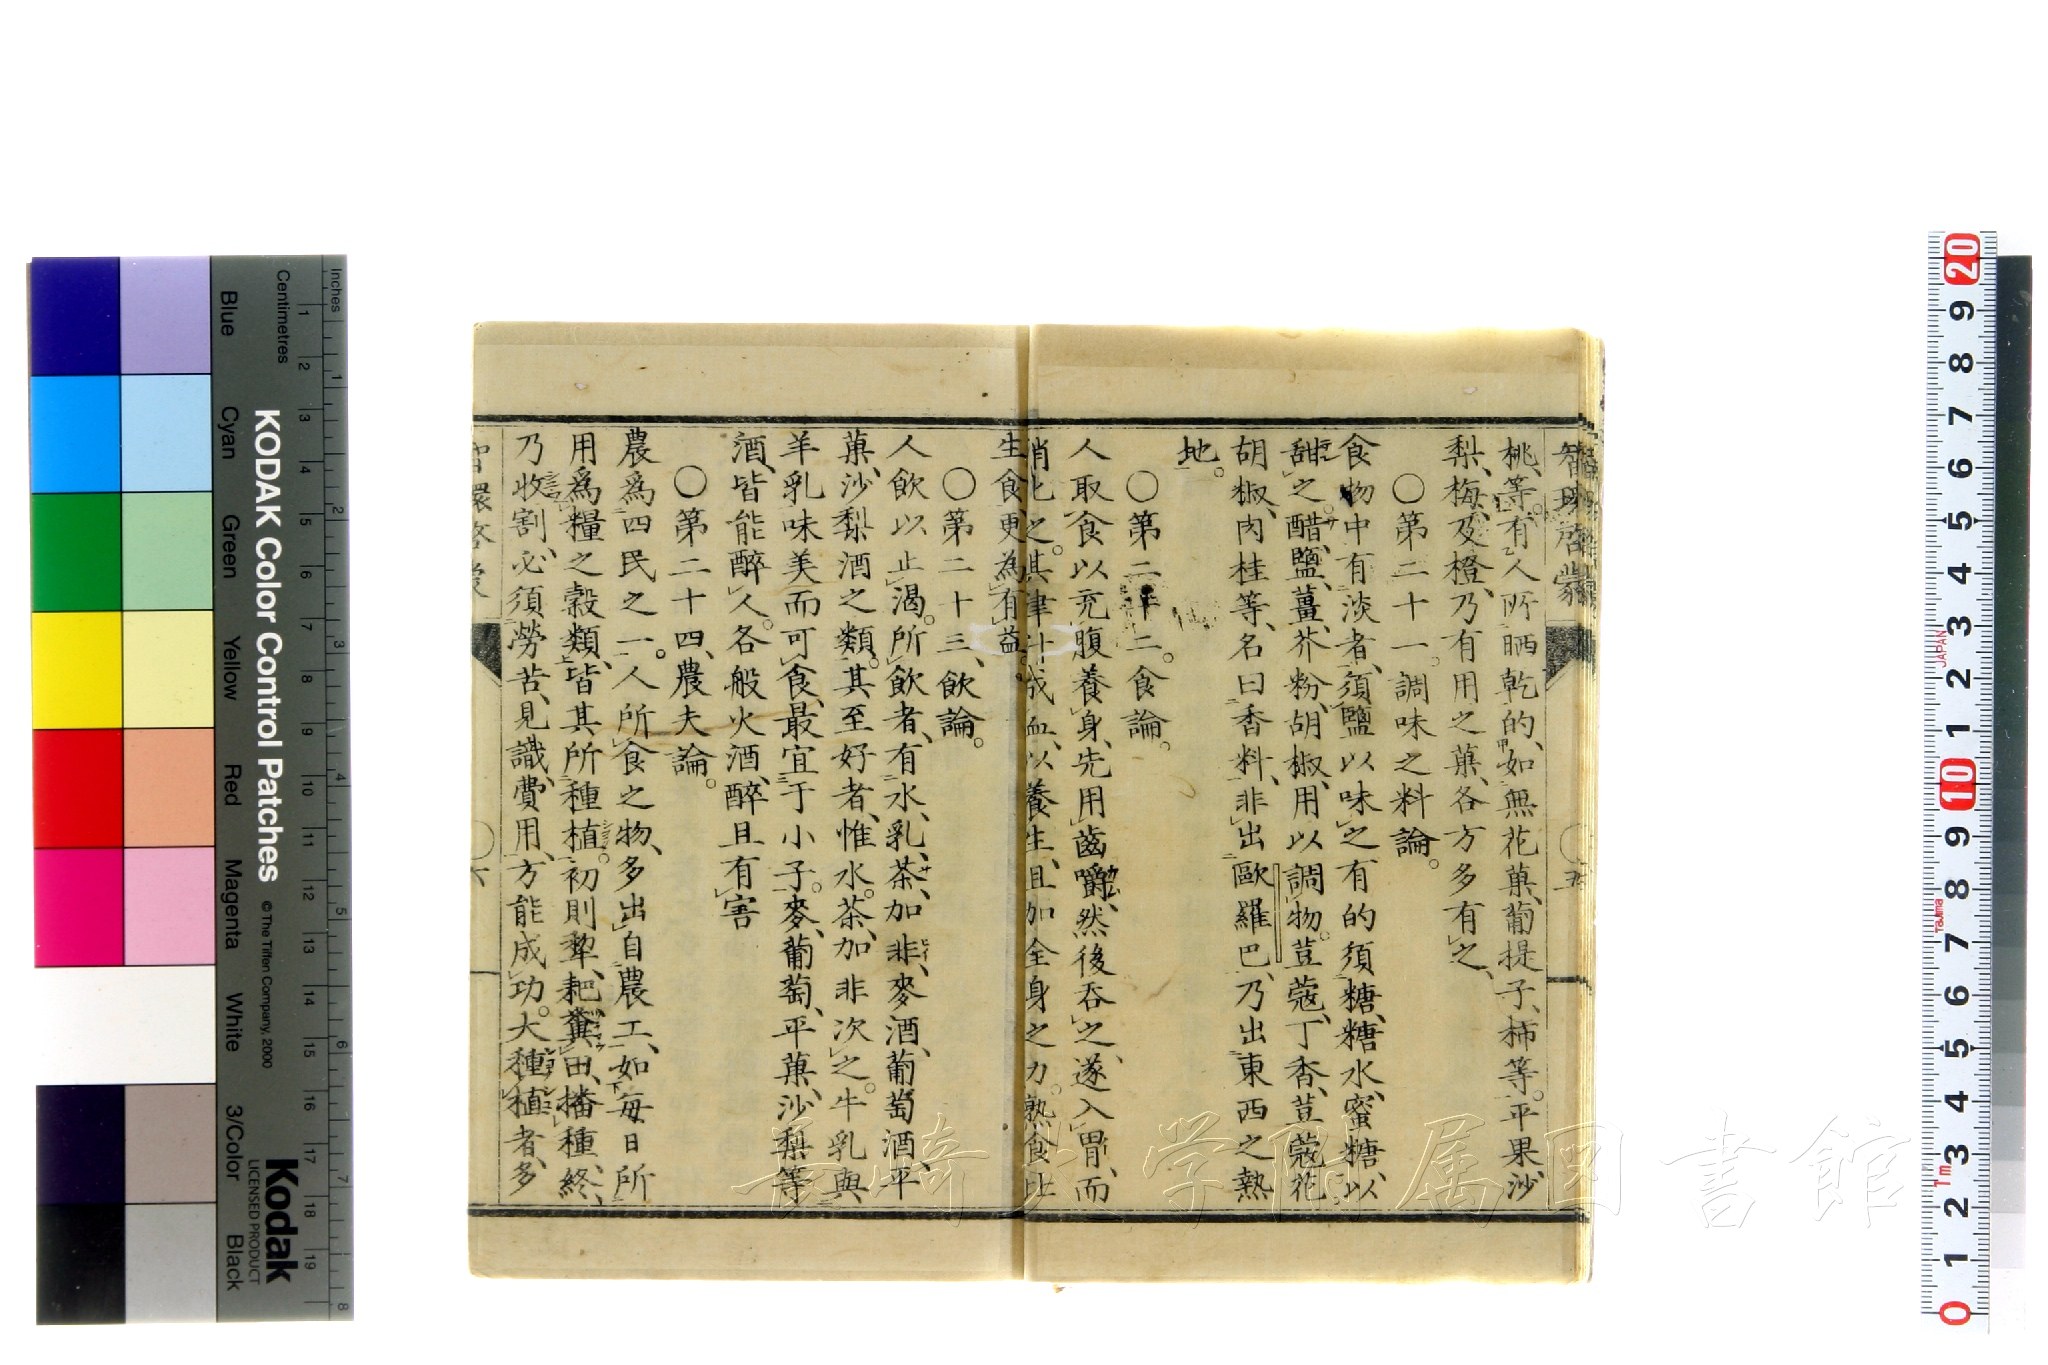 智環啓蒙
桃、等。有人所晒乾的、如無花菓、葡提子、柿等。平果、沙
梨、梅、及橙、乃有用之菓、各方多有之、
〇第二十一。調味之料論。
食物中有淡者、須鹽以味之有的須糖、糖水、蜜糖、以
甜之。醋、鹽、薑、芥粉、胡椒、用以調物。荳蔻、丁香、荳蔻花。
胡椒、肉桂等、名曰香料、非出歐羅巴、乃出東西之熱
地。
〇第二十二。食論。
人取食以充腹養身、先用齒嚼、然後吞之、遂入胃、而
消化之。其津汁成血、以養生、且加全身之力。熟食比
生食更為有益。
〇第二十三、飲論。
人飲以止渴。所飲者、有水、乳、茶、加非、麥酒、葡萄酒、平
菓、沙梨酒之類。其至好者、惟水。茶、加非次之。牛乳與、
羊乳味美而可食、最宜于小子。麥、葡萄、平菓、沙梨等
酒、皆能醉人。各般火酒、醉且有害
〇第二十四、農夫論。
農爲四民之一。人所食之物、多出自農工、如每日所
用爲糧之穀類、皆其所種植。初則犂、耙、糞田、播種、終、
乃收割、必須勞苦、見識、費用、方能成功。大種植者、多
智環啓蒙
〇六
KODAK Color Control Patches
© The Tiffen Company, 2000
Kodak
LICENSED PRODUCT
Inches
Centimetres
Blue
Cyan
Green
Yellow
Red
Magenta
White
3/Color
Black
1 2 3 4 5 6 7 8
1 2 3 4 5 6 7 8 9 10 11 12 13 14 15 16 17 18 19
20 9 8 7 6 5 4 3 2 1 10 9 8 7 6 5 4 3 2 1 0
JAPAN
Tajima
Tm
長崎大学附属図書館